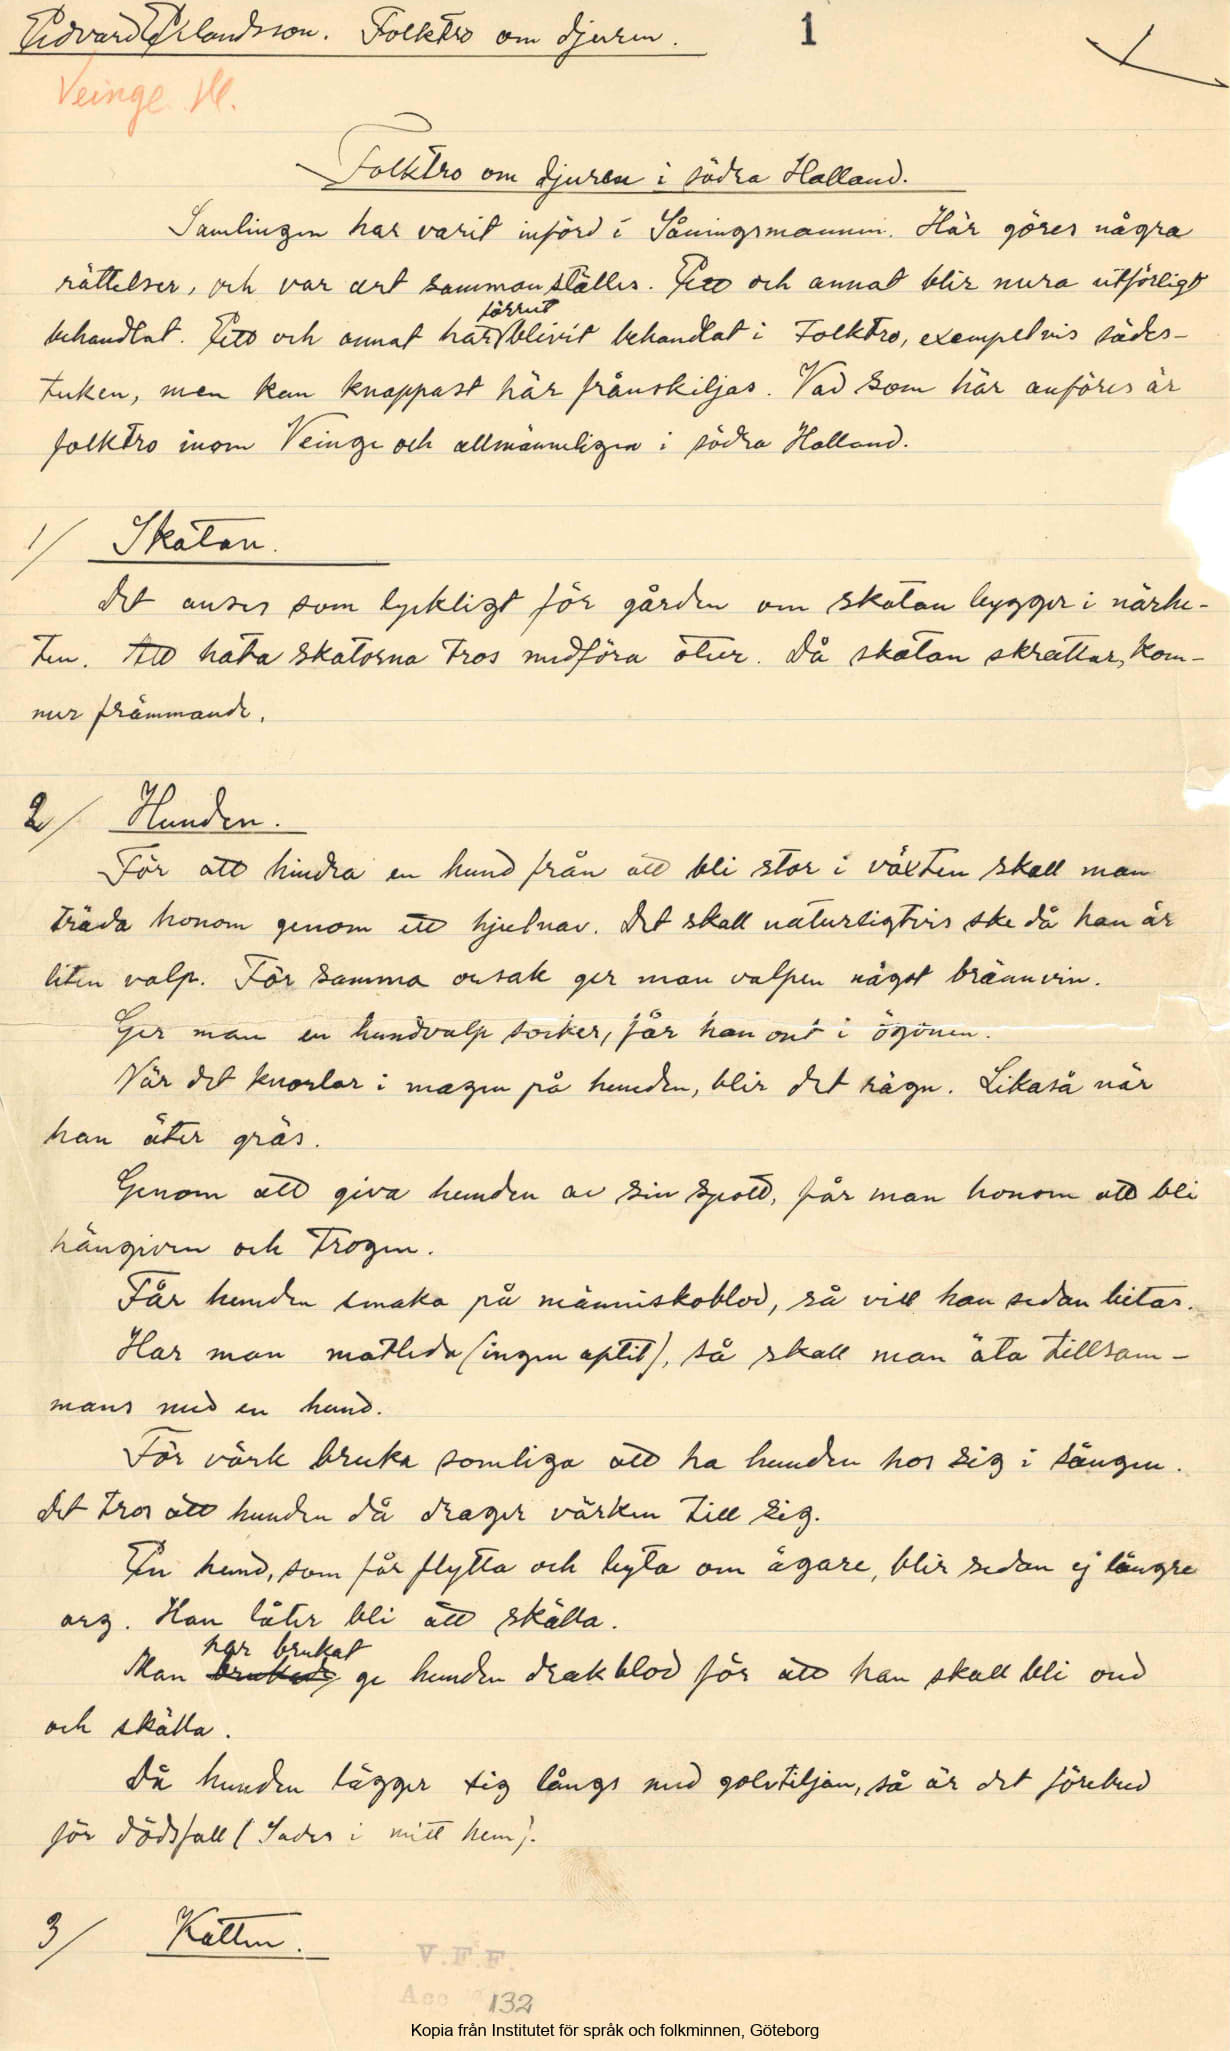 Edvard Erlandsson. Folktro om djuren. 1
Veinge. Hl.
Folktro om djuren i södra Halland.
Samlingen har varit införd i Såningsmannen. Här göres några
rättelser, och var art sammanställes. Ett och annat blir mera utförligt
förrut
behandlat. Ett och annat har blivit behandlat i Folktro, exempelvis sädes-
tuken, men kan knappast här frånskiljas. Vad som här anföres är
folktro inom Veinge och allmänneligen i södra Halland.
1/ Skatan.
Det anses som lyckligt för gården om skatan bygger i närhe-
ten. Att hata skatorna tros medföra otur. Då skatan skrattar, kom-
mer främmande.
2/ Hunden.
För att hindra en hund från att bli stor i växten skall man
träda honom genom ett hjulnav. Det skall naturligtvis ske då han är
liten valp. För samma orsak ger man valpen något brännvin.
Ger man en hundvalp socker, får han ont i ögonen.
När det knorlar i magen på hunden, blir det rägn. Likaså när
han äter gräs.
Genom att giva hunden av sin spott, får man honom att bli
hängiven och trogen.
Får hunden smaka på människoblod, så vill han sedan bitas.
Har man matleda (ingen aptit), så skall man äta tillsam-
mans med en hund.
För värk bruka somliga att ha hunden hos sig i sängen.
Det tros att hunden då drager värken till sig.
En hund, som får flytta och byta om ägare, blir sedan ej längre
arg. Han låter bli att skälla.
har brukat
Man brukade ge hunden drakblod för att han skall bli ond
och skälla.
Då hunden lägger sig långs med golvtiljan, så är det förebud
för dödsfall (Sades i mitt hem).
3/ Katten.
V.F.F.
Acc 132
Kopia från Institutet för språk och folkminnen, Göteborg